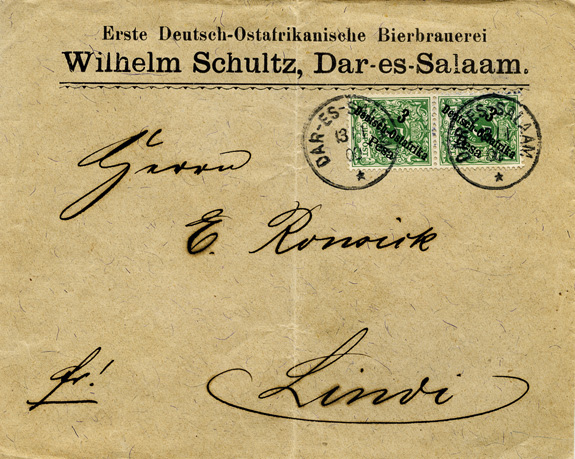 Erste Deutsch-Ostafrikanische Bierbrauerei
Wilhelm Schultz, Dar-es-Salaam.
DAR-ES-S
13
3
Deutsch-Ostafrika
Pesa
DAR-ES-SALAAM
3
Deutsch-Ostafrika
Pesa
Herrn
E. Ronsick
fr!
Lindi